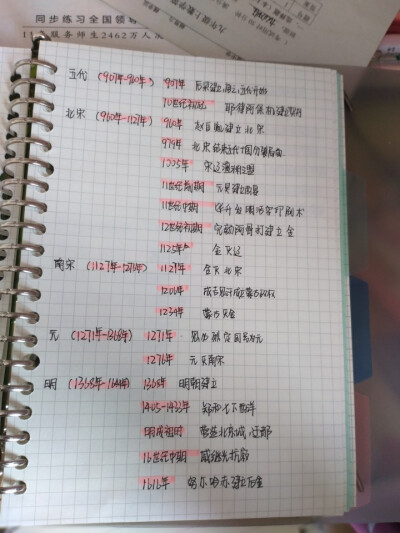 同步练习全国领导
服务师生2462万人次
九年级上数学
五代 (907年-960年) 907年 后梁建立,五代开始
10世纪初 耶律阿保机建契丹
北宋 (960年-1127年) 960年 赵匡胤建立北宋
979年 北宋结束五代十国分裂局面
1005年 宋辽澶渊之盟
11世纪前期 元昊建西夏
11世纪中期 毕升发明活字印刷术
12世纪初期 完颜阿骨打建立金
1125年 金灭辽
南宋 (1127年-1276年) 1127年 金灭北宋
1206年 成吉思汗建立蒙古政权
1234年 蒙古灭金
元 (1271年-1368年) 1271年 忽必烈定国号为元
1276年 元灭南宋
明 (1368年-1644年) 1368年 明朝建立
1405-1433年 郑和七下西洋
明成祖时 营造北京城,迁都
16世纪中期 戚继光抗倭
1616年 努尔哈赤建立后金